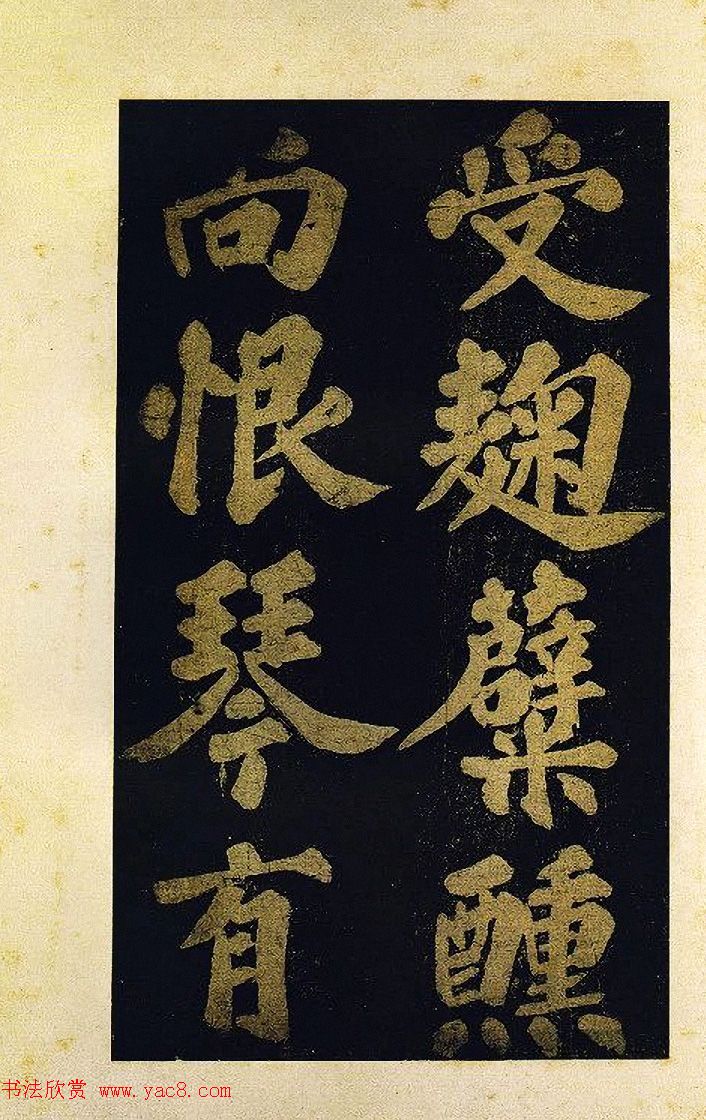 受麹糵醺
向恨琴有
书法欣赏 www.yac8.com